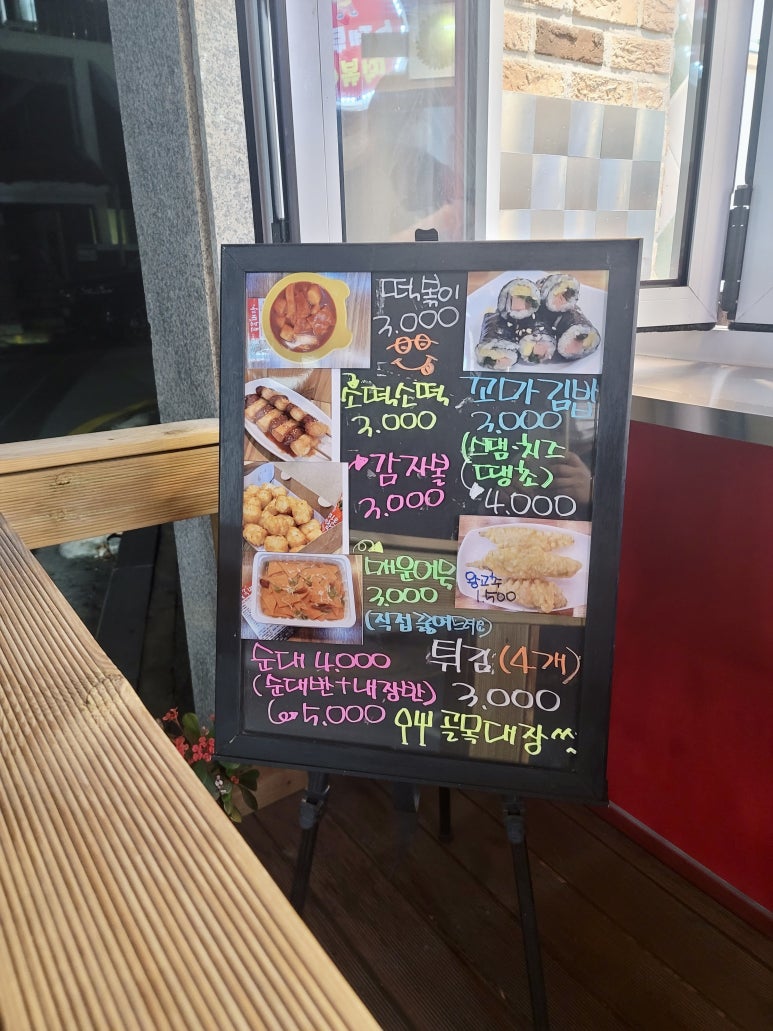 떡볶이
3.000
소떡소떡
3.000
꼬마김밥
3.000
(스팸·치즈
(땡초)
4.000
감자볼
3.000
매운어묵
3.000
(직접 끓여드려요)
왕고추
1.500
순대 4.000
(순대반+내장반)
5.000
튀김 (4개)
3.000
골목대장